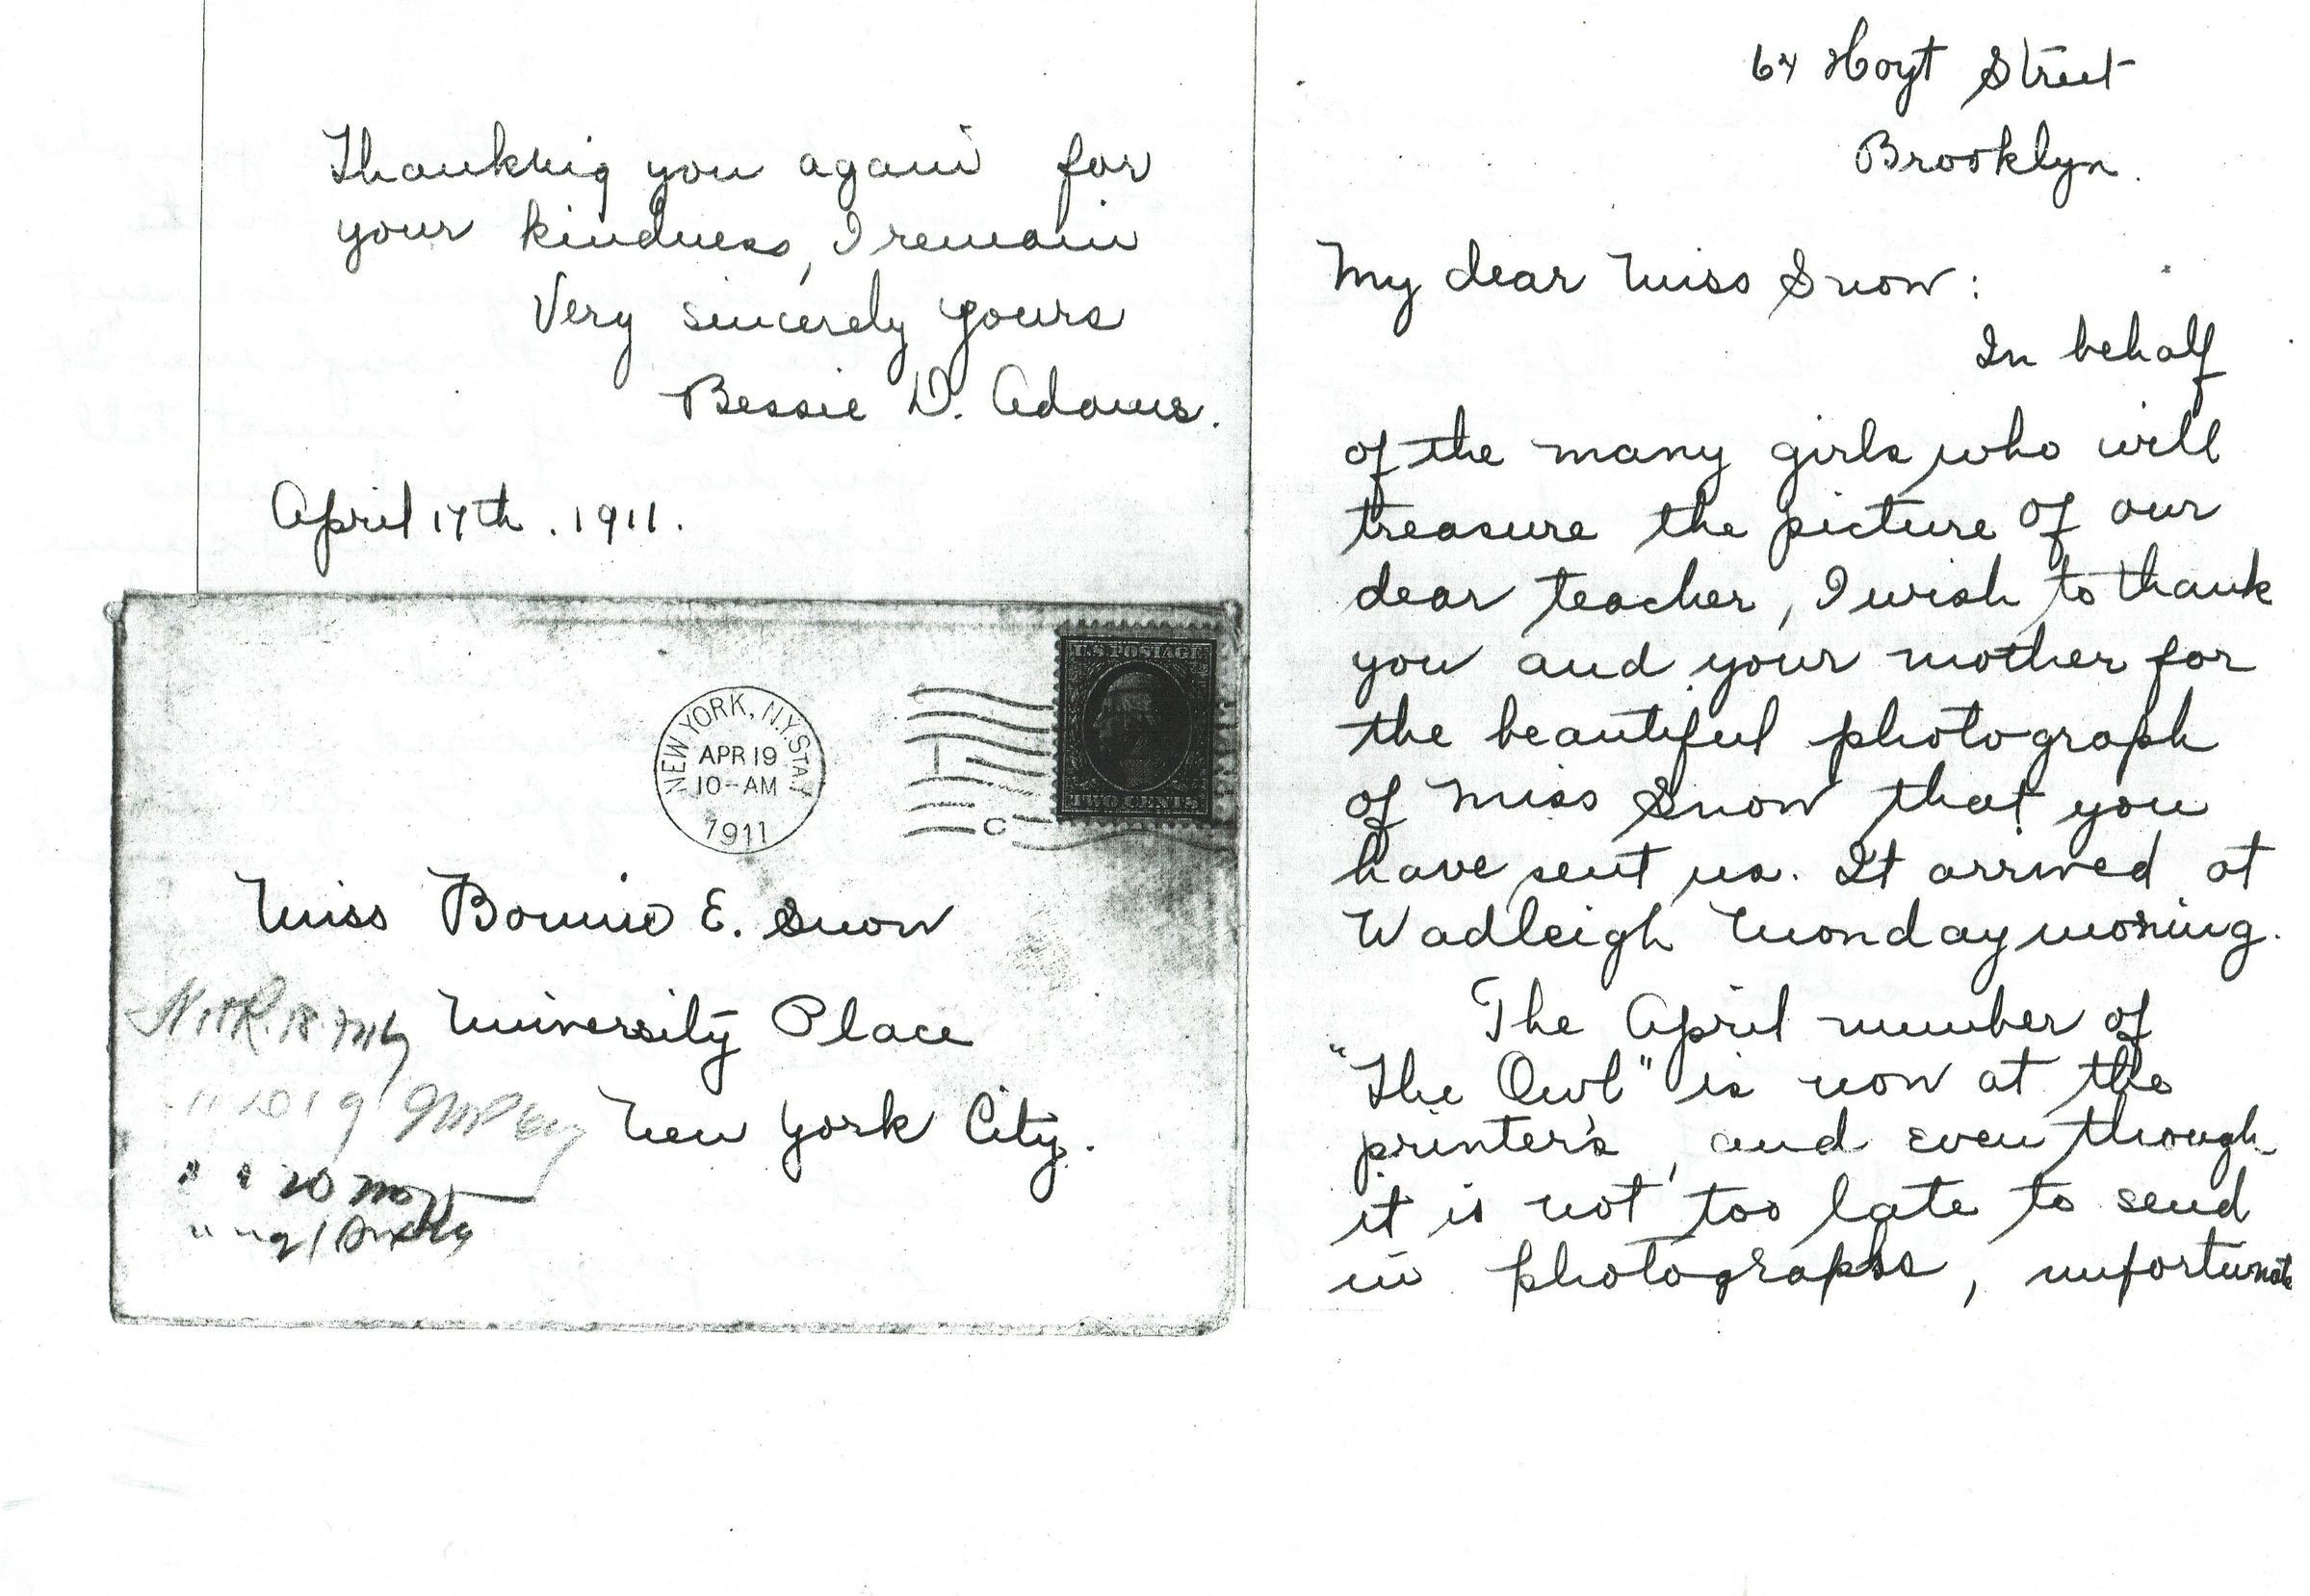 64 Hoyt Street
Brooklyn.
My dear Miss Snow:
In behalf
of the many girls who will
treasure the picture of our
dear teacher, I wish to thank
you and your mother for
the beautiful photograph
of Miss Snow that you
have sent us. It arrived at
Wadleigh Monday morning.
The April number of
"The Owl" is now at the
printer's, and even though
it is not too late to send
in photographs, unfortunate
Thanking you again for
your kindness, I remain
Very sincerely yours
Bessie D. Adams.
April 17th. 1911.
U.S. POSTAGE
TWO CENTS
NEW YORK, N.Y. STA.
APR 19
10-AM
1911
C
Miss Bonnie E. Snow
University Place
New York City.